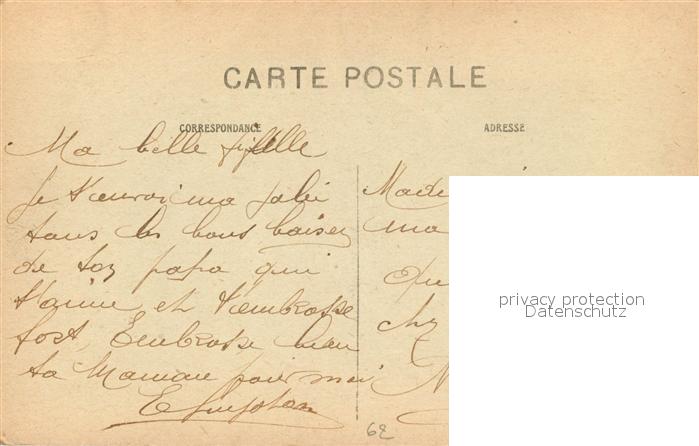 CARTE POSTALE
CORRESPONDANCE
ADRESSE
Ma belle fifille
Je t'envoi ma
tous les bons baiser
de ton papa qui
t'aime et t'embrasse
fort, Embrasse bien
ta Maman pour moi
Made
ma
chez
N
privacy protection
Datenschutz
62